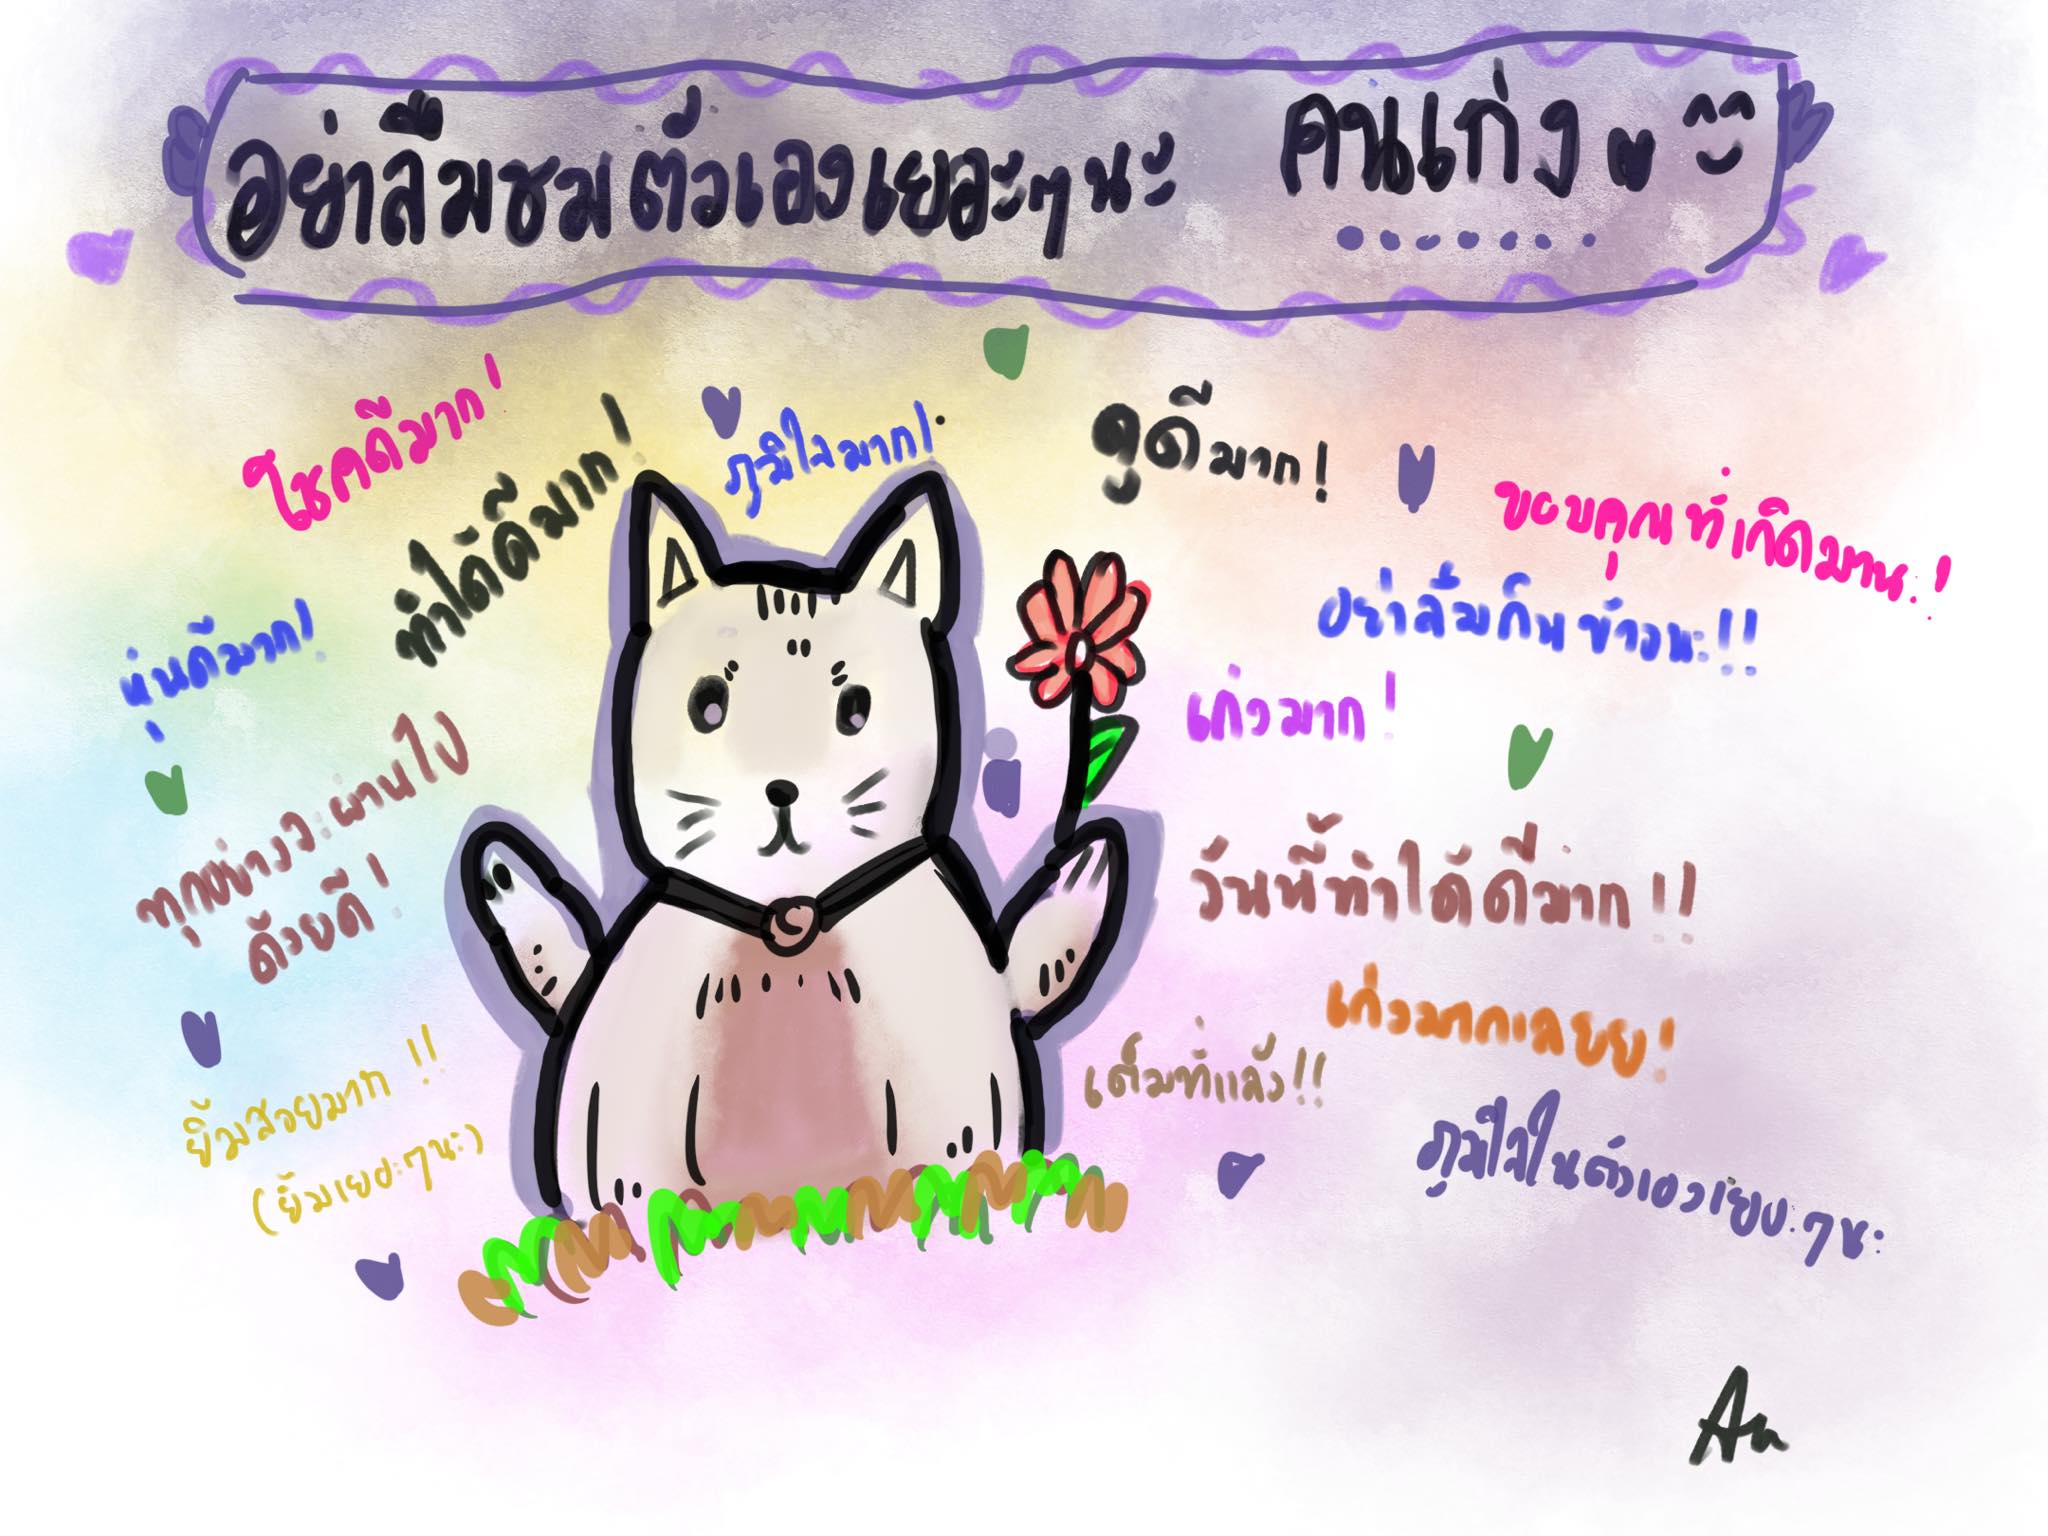 อย่าลืมชมตัวเองเยอะๆนะ คนเก่ง
โชคดีมาก!
ทำได้ดีมาก!
ภูมิใจมาก!
ดูดีมาก!
ขอบคุณที่เกิดมานะ!
หุ่นดีมาก!
อย่าลืมกินข้าวนะ!!
เก่งมาก!
ทุกอย่างจะผ่านไป
ด้วยดี!
วันนี้ทำได้ดีมาก!!
เก่งมากเลยย!
ยิ้มสวยมาก!!
(ยิ้มเยอะๆนะ)
เต็มที่แล้ว!!
ภูมิใจในตัวเองเยอะๆนะ
An